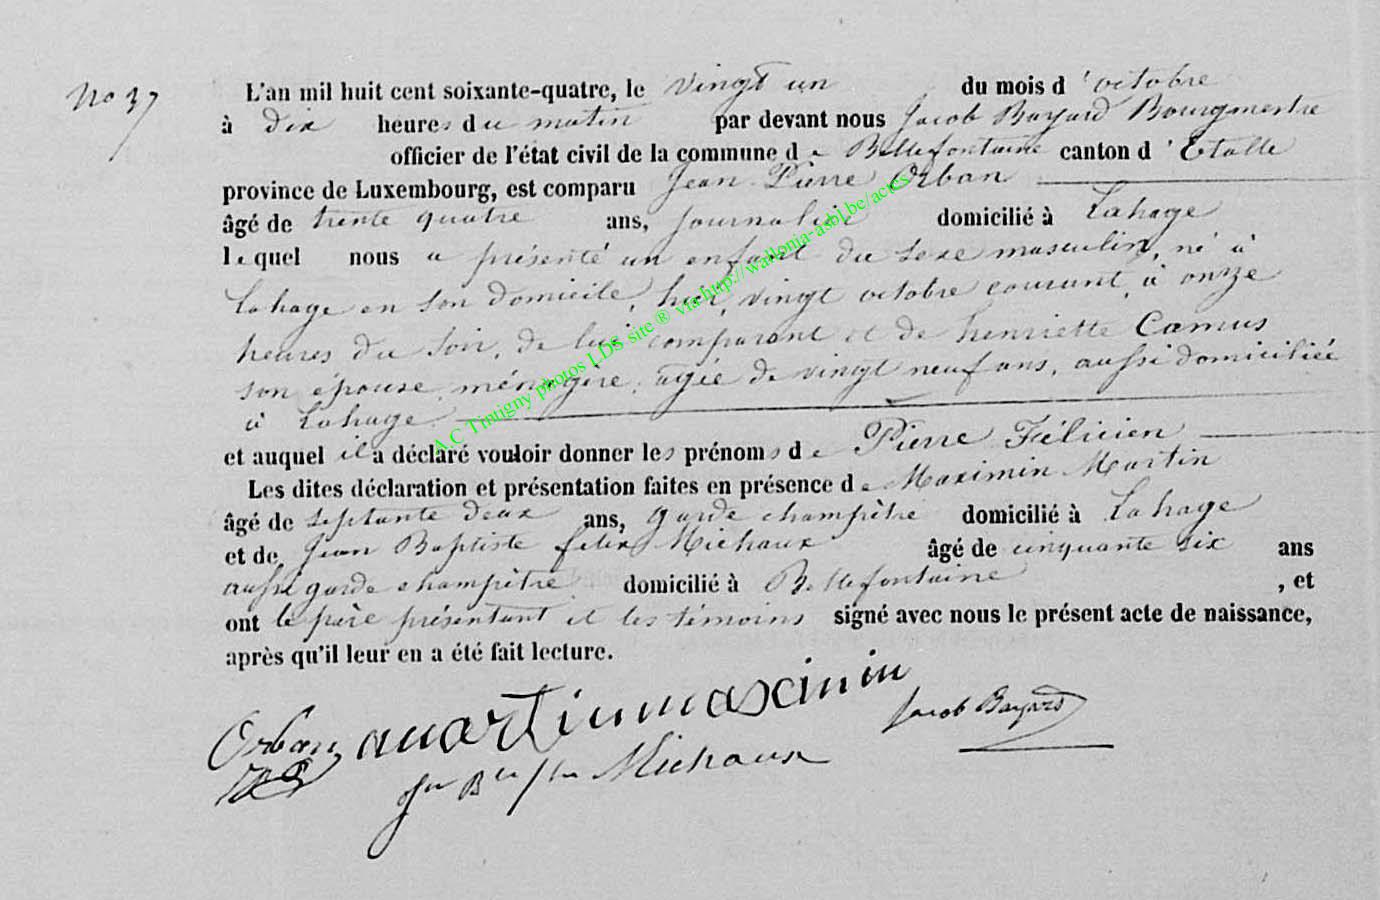 No 37
L'an mil huit cent soixante-quatre, le vingt un du mois d'octobre
à dix heures du matin par devant nous Jacob Bayard Bourgmestre
officier de l'état civil de la commune de Bellefontaine canton d'Etalle
province de Luxembourg, est comparu Jean Pierre Orban
âgé de trente quatre ans, journalier domicilié à Lahage
lequel nous a présenté un enfant du sexe masculin, né à
Lahage en son domicile, hier, vingt octobre courant, à onze
heures du soir, de lui comparant et de henriette Camus
son épouse, ménagère, agée de vingt neuf ans, aussi domiciliée
à Lahage
et auquel il a déclaré vouloir donner les prénoms de Pierre Félicien
Les dites déclaration et présentation faites en présence de Maximin Martin
âgé de septante deux ans, garde champêtre domicilié à Lahage
et de Jean Baptiste felix Michaux âgé de cinquante six ans
aussi garde champêtre domicilié à Bellefontaine, et
ont le père présentant et les témoins signé avec nous le présent acte de naissance,
après qu'il leur en a été fait lecture.
Orban martin maximin Jacob Bayard
Michaux
A.C Tintigny photos LDS site ® via http://wallonia-asbl.be/actes